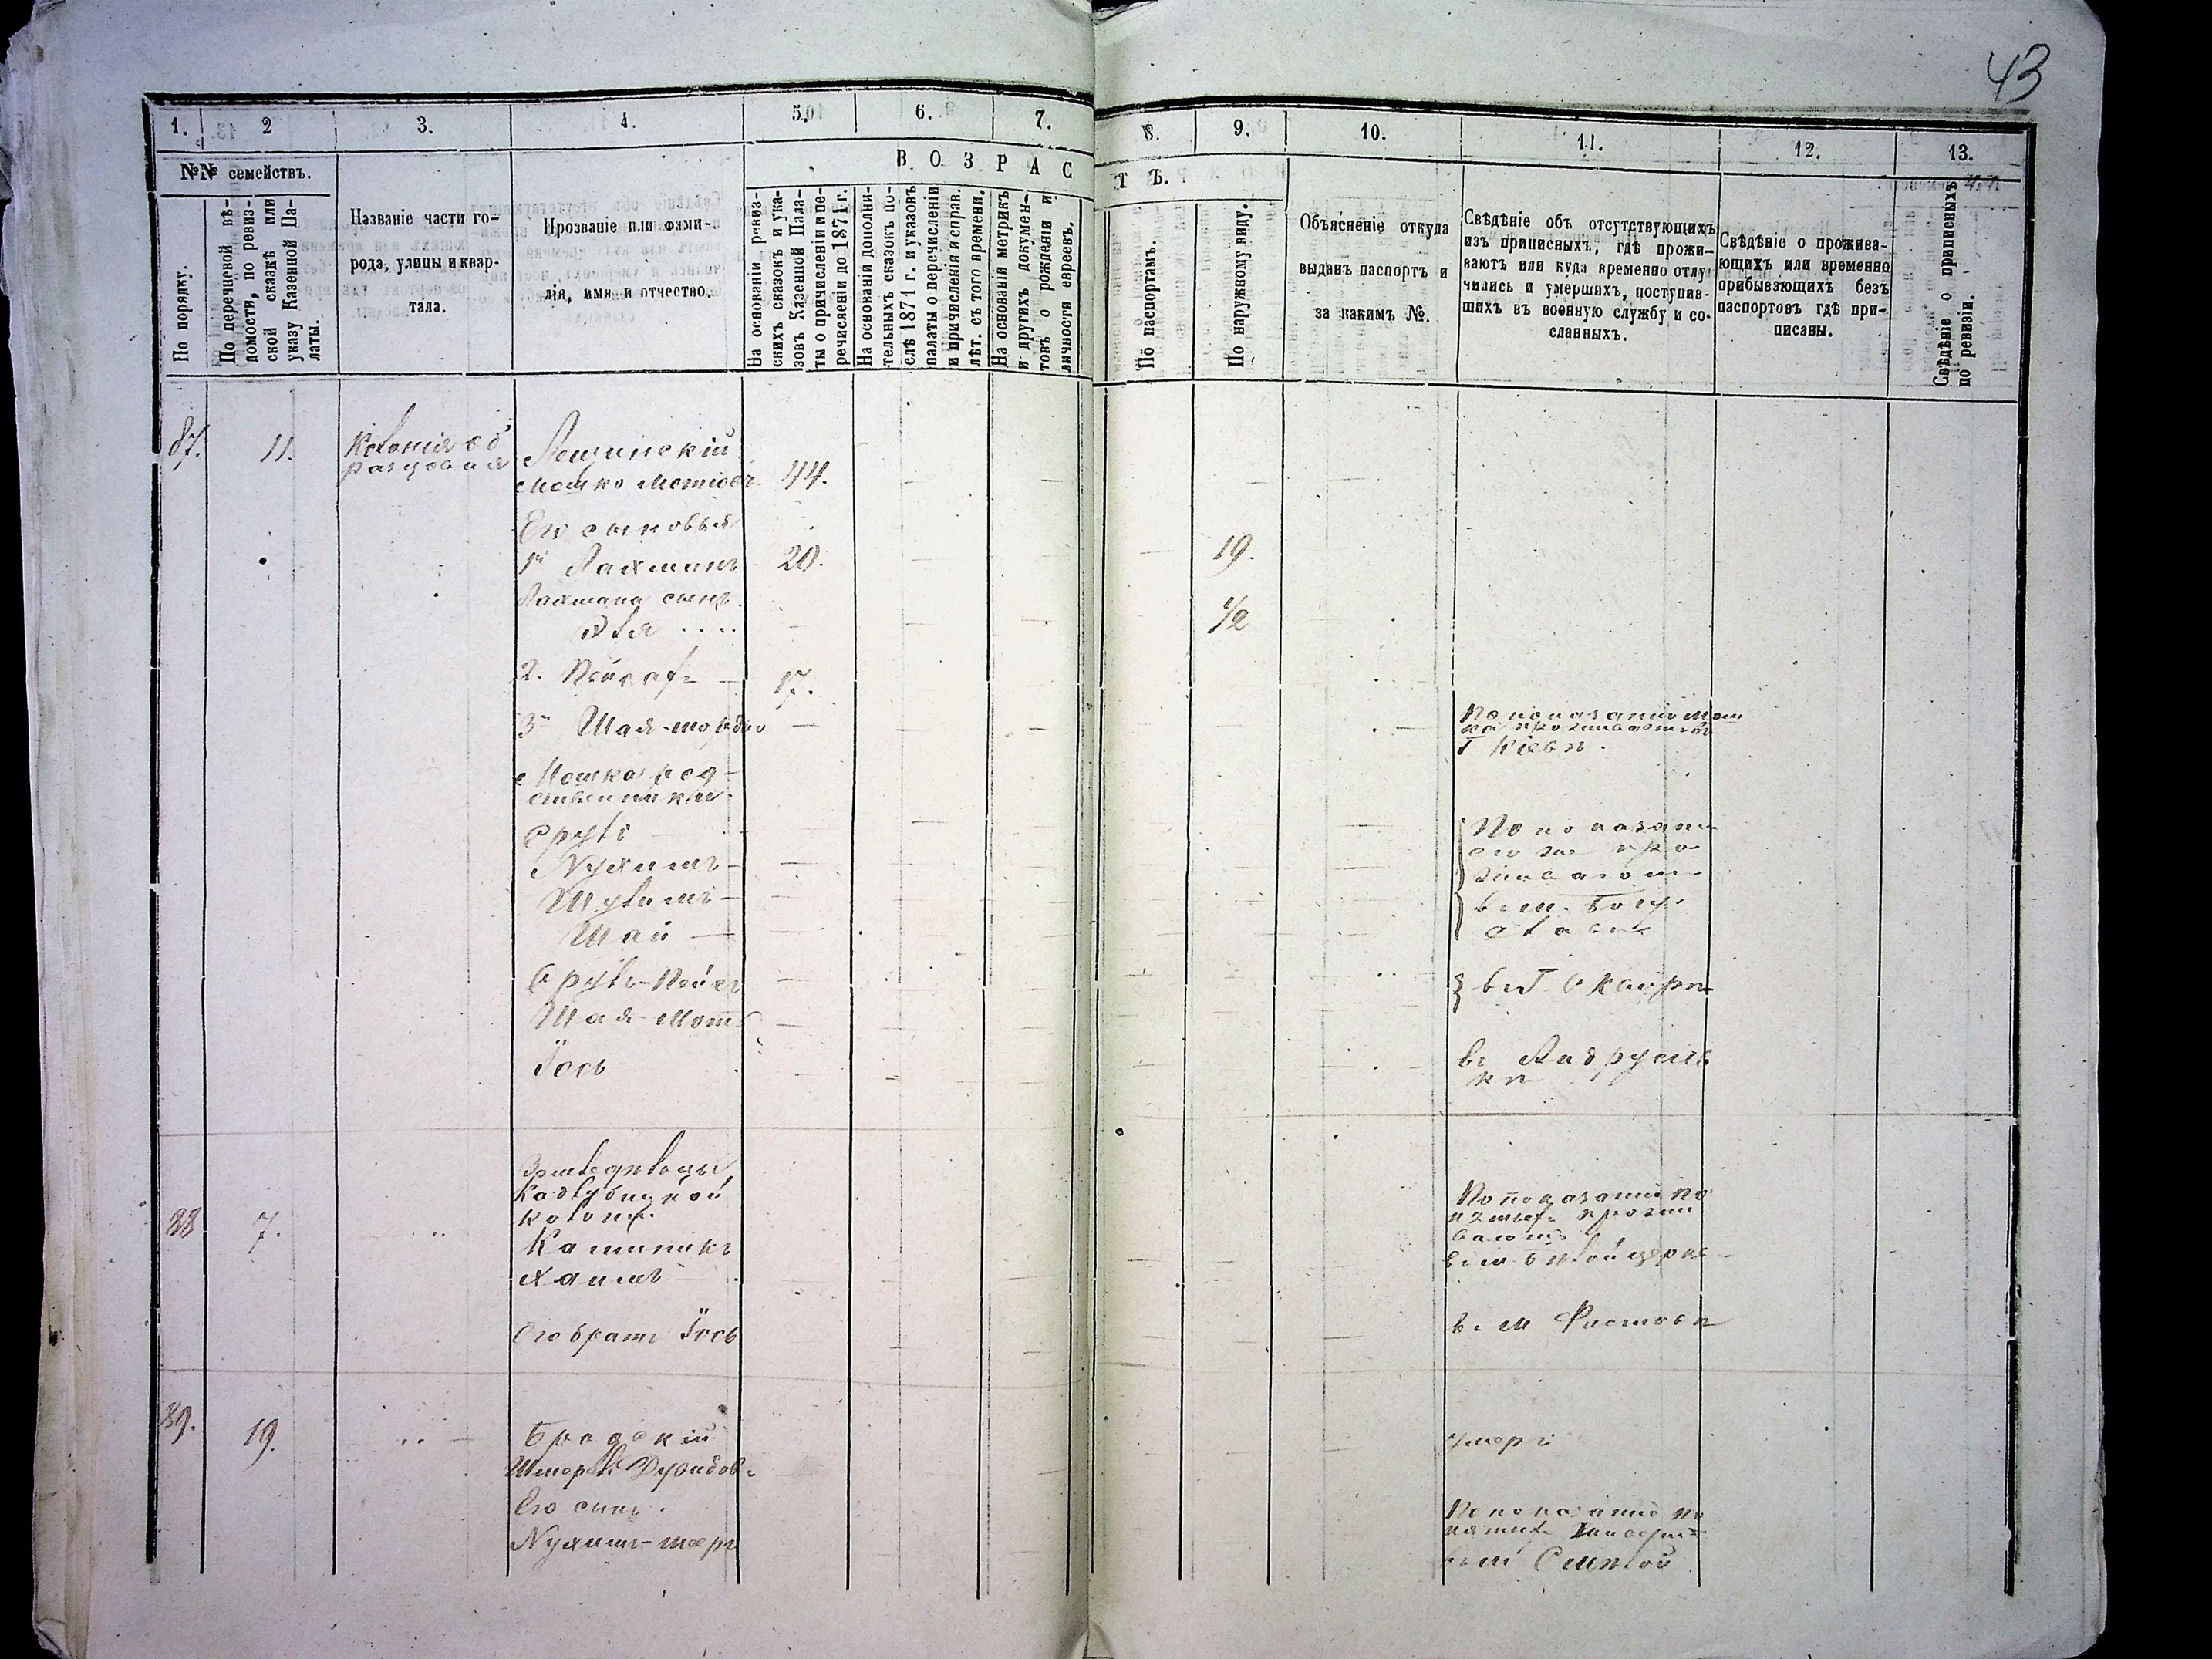 43
1. 2 3. 4. 5. 6. 7. 8. 9. 10. 11. 12. 13.
№№ семействъ.
По порядку.
По перечневой вѣ-
домости, по ревиз-
ской сказкѣ или
указу Казенной Па-
латы.
Названіе части го-
рода, улицы и квар-
тала.
Прозваніе или фами-
лія, имя и отчество.
ВОЗРАСТЪ.
На основаніи ревиз-
скихъ сказокъ и ука-
зовъ Казенной Пала-
ты о причисленіи и пе-
речисленіи до 1871 г.
На основаніи дополни-
тельныхъ сказокъ по-
слѣ 1871 г. и указовъ
палаты о перечисленіи
и причисленіи и справ.
лѣт. съ того времени.
На основаніи метрикъ
и другихъ докумен-
товъ о рожденіи и
личности евреевъ.
По паспортамъ.
По наружному виду.
Объясненіе откуда
выданъ паспортъ и
за какимъ №.
Свѣдѣніе объ отсутствующихъ
изъ приписныхъ, гдѣ прожи-
ваютъ или куда временно отлу-
чились и умершихъ, поступив-
шихъ въ военную службу и со-
сланныхъ.
Свѣдѣніе о прожива-
ющихъ или временно
прибывающихъ безъ
паспортовъ гдѣ при-
писаны.
Свѣдѣніе о приписныхъ
по ревизіи.
87. 11. Колонія об
разцовая
Лещинскій
Мошко Мотіовъ 44.
Его сыновья
1й Лахманъ 20. 19.
Лахмана сынъ
1/2
2. Пейсахъ 17.
3й Шая-мордко
По показанію Мош
ка проживаетъ въ
г Кіевѣ.
Мошка род-
ственники
Сруль
Нухимъ
Шулимъ
Шай
По показані
его же про
живаютъ
въ м. Богу
славѣ
Сруль-Пейсъ
Шая-Мотъ
въ г. Сквирѣ
Іось
въ
кѣ
Земледѣльцы
Кадлубицкой
колоніи.
88 7. Каминикъ
Хаимъ
По показанію по
нятыхъ прожи
ваютъ
въ м. бѣлой церкв
Его братъ Іось
въ м Фастовѣ
89. 19. Бродскій
Шмерель Дувидовъ
умеръ
Его сынъ.
Нухимъ-меръ
По показанію по
нятыхъ
въ м Смѣлой